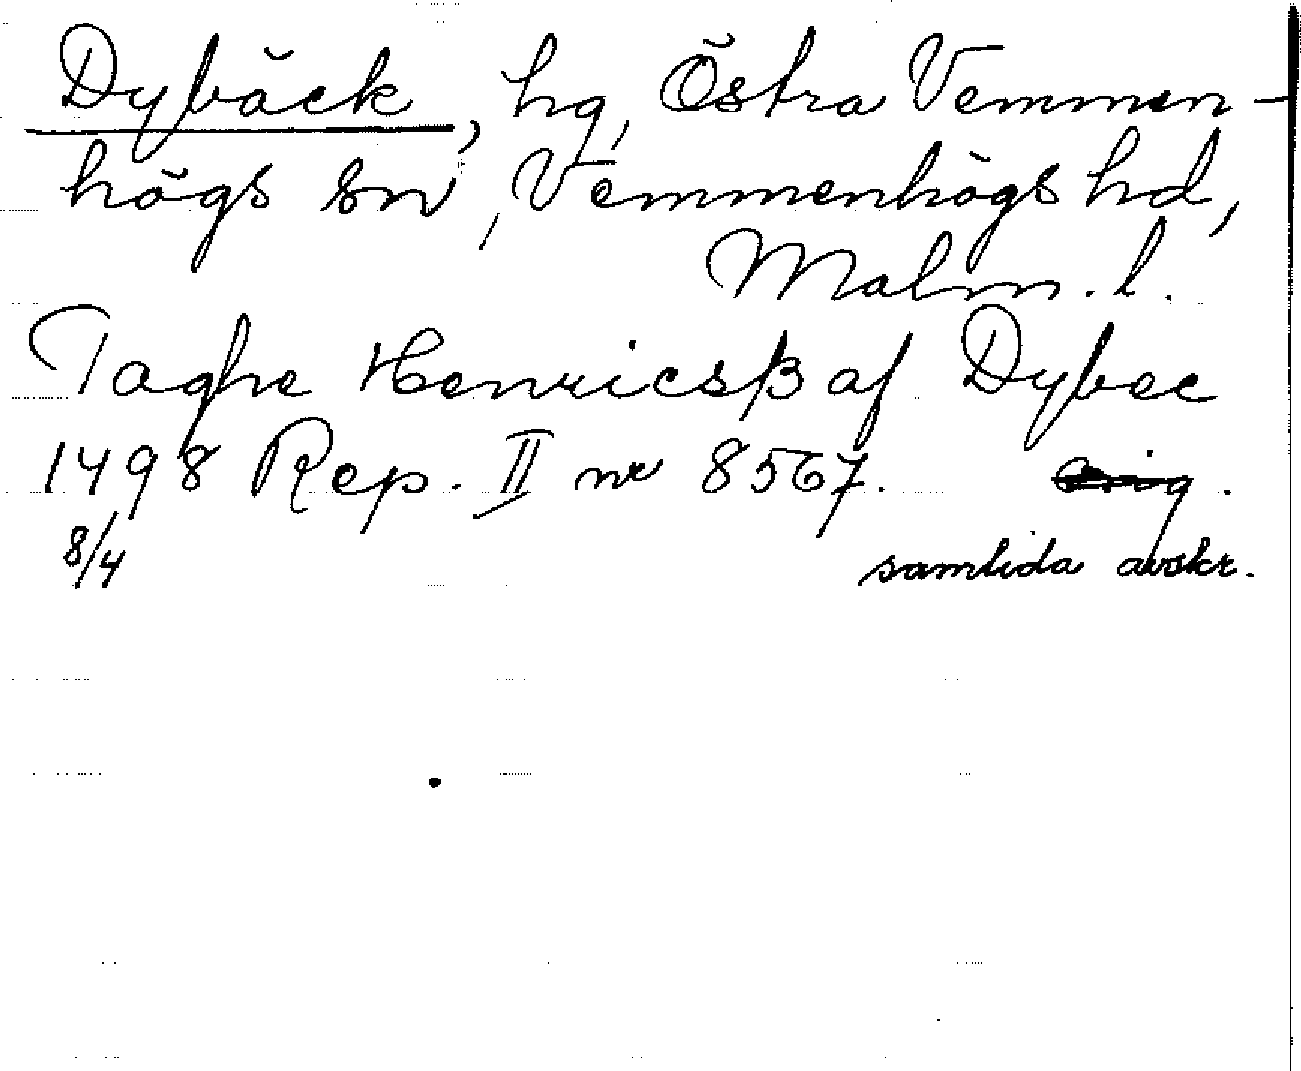 Dybäck, hg, Östra Vemmen-
högs sn, Vemmenhögs hd,
Malm. l.
Taghe Henricsß af Dybec
1498 Rep. II nr 8567. orig.
8/4 samtida avskr.